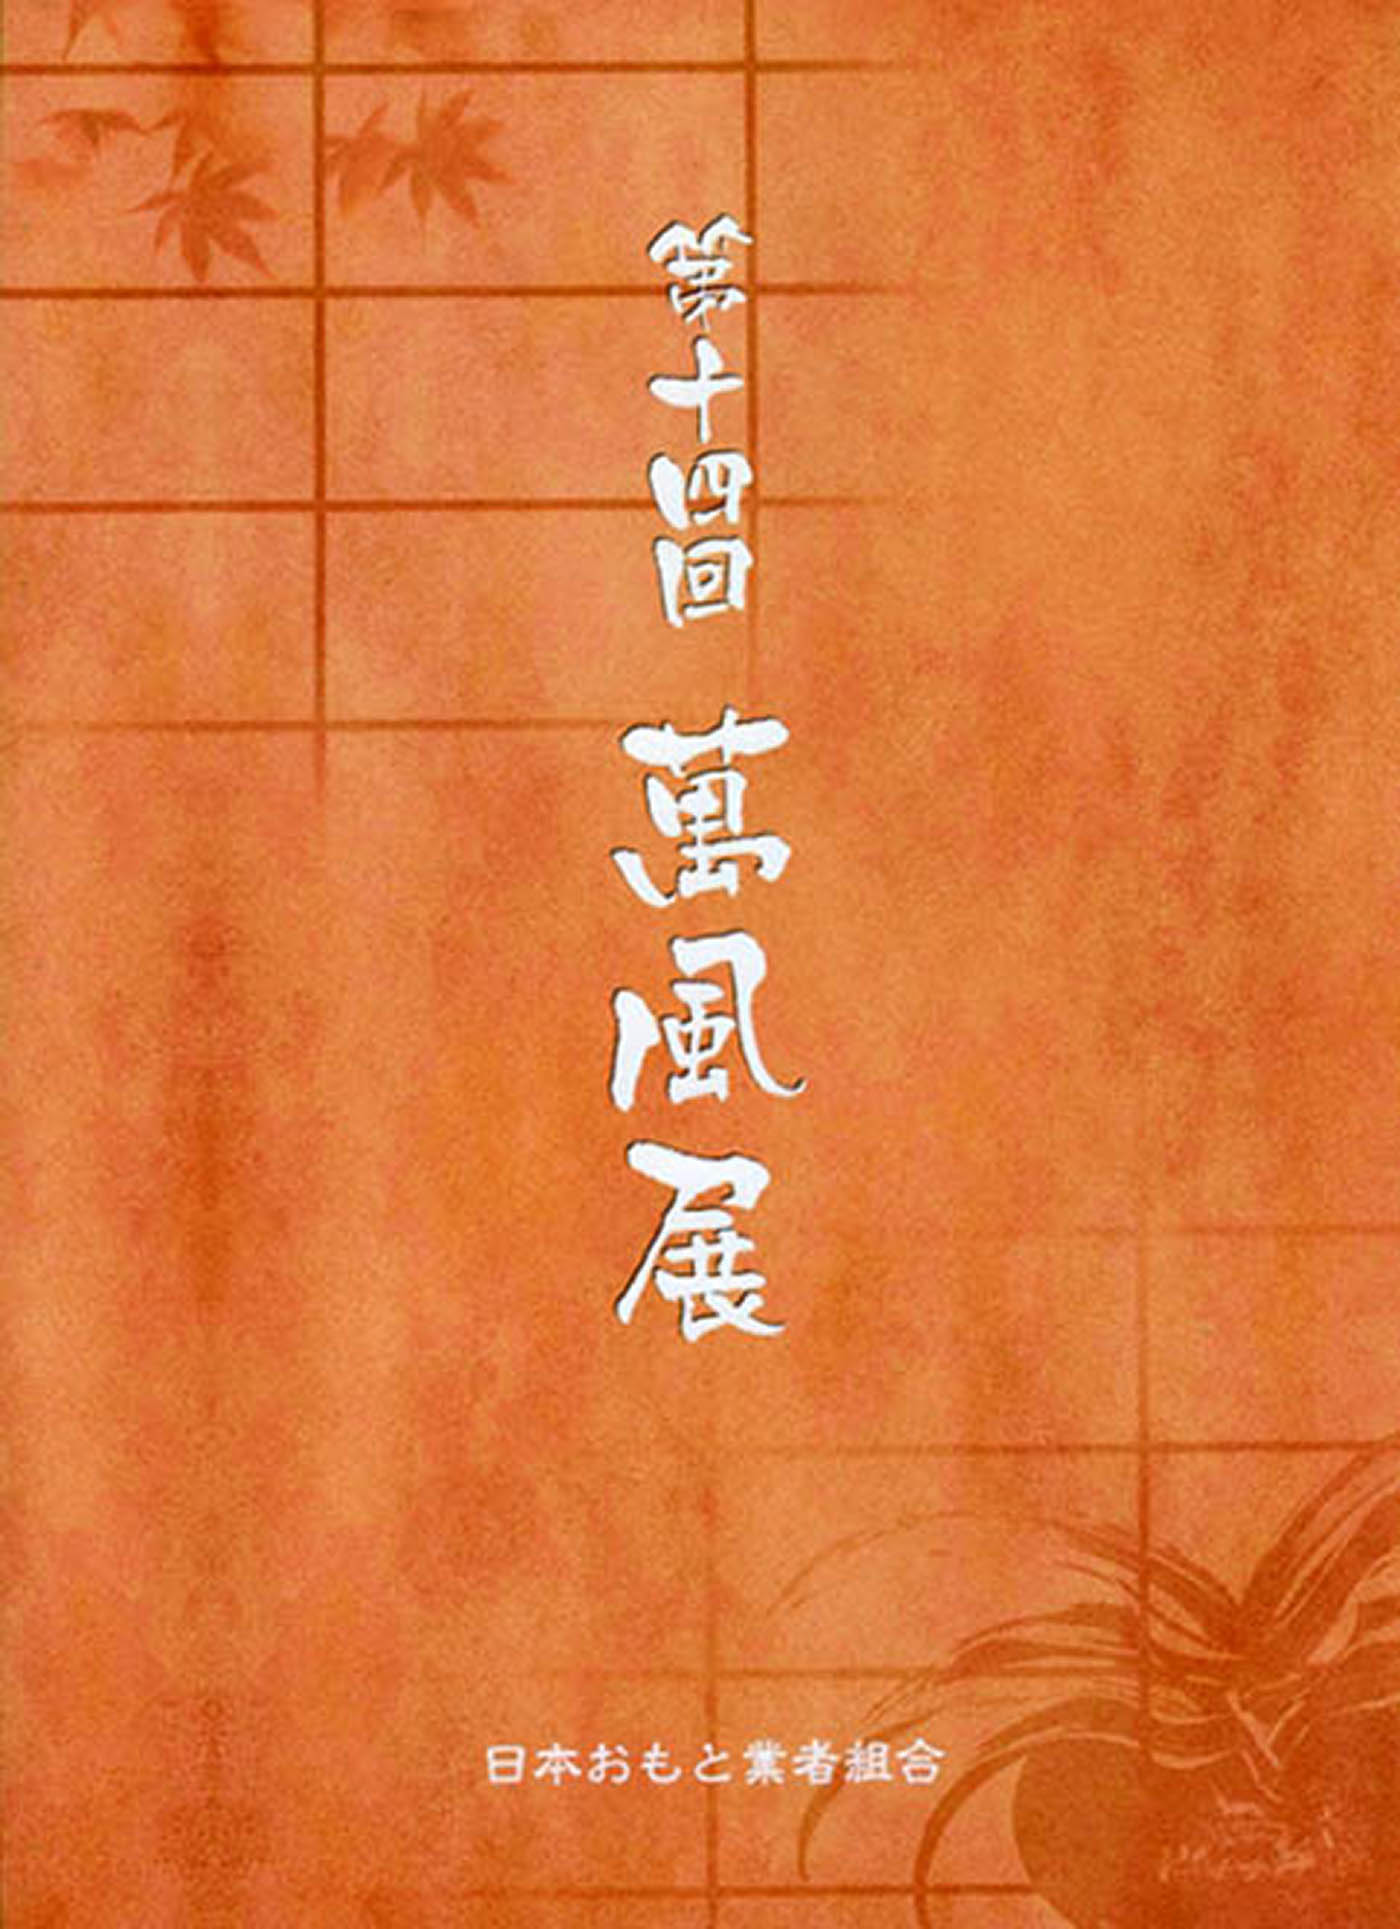 第十四回 萬風展
日本おもと業者組合